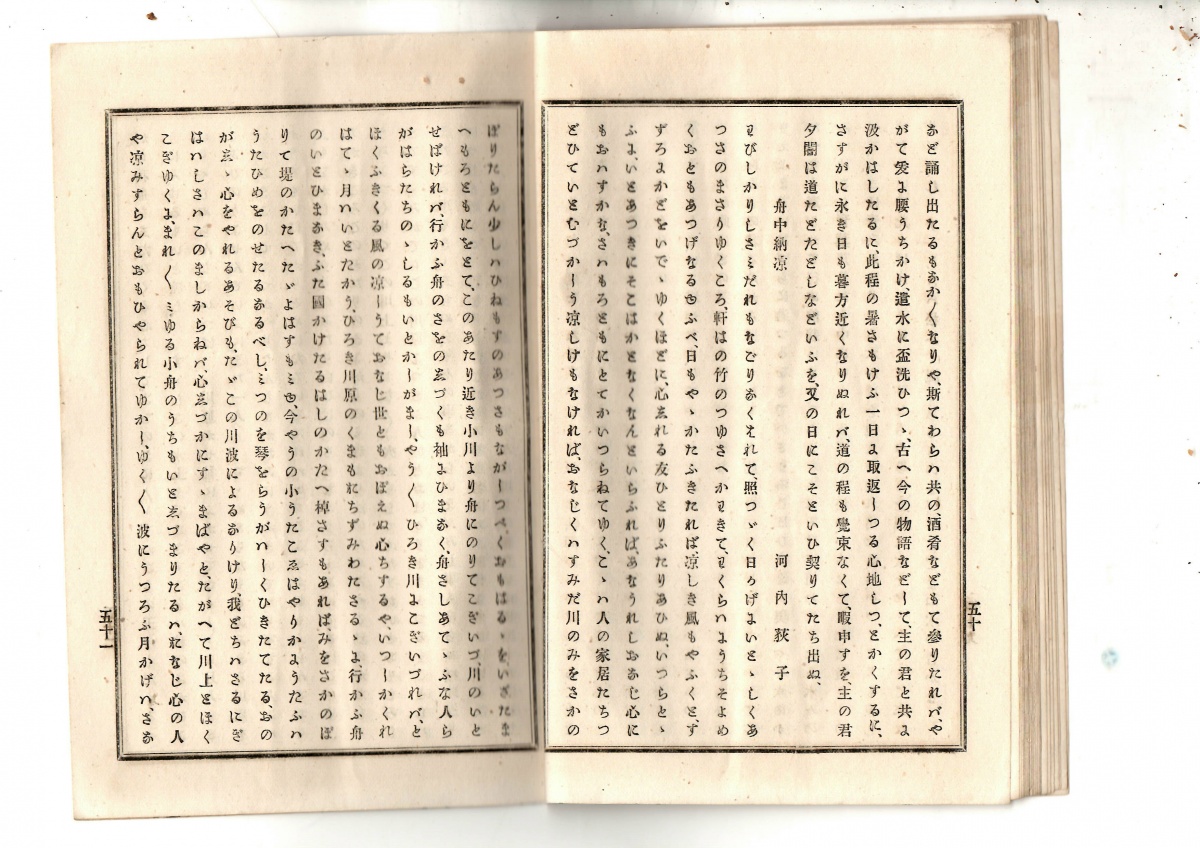 など誦し出たるもおかくなりや、斯てわらハ共の、酒肴などもて參りたれバ、や
がて爰よ腰うちかけ、遣水に盃洗ひつゝ、古へ今の物語などして、主の君と共よ
汲かはしたるに此程の暑さもけふ一日よ取返しつる心地しつ、とかくするに、
さすがに永き日も暮方近くなりぬれバ、道の程も覺束なくて、暇申すを、主の君
夕闇は道たどたどしなどいふを、又の日にこそといひ契りてたち出ぬ、
舟中納凉
河内荻子
わびしかりしさミだれもなごりなくはれて、照つゞく日かげよいとゝしくあ
つさのまさりゆくころ、軒はの竹のつゆさへかわきて、わくらハようちそよめ
くおともあつげなるゆふべ、日もやゝかたふきたれば、凉しき風もやふくと、す
ずろよかどをいでゝゆくほどに、心しれる友ひとりふたりあひぬ、いつらとゝ
ふよ、いとあつきにそこはかとなくなんといらふれば、あなうれしおなじ心に
もおハすかな、さハもろともにとてかいつらねてゆく、こゝハ人の家居たちつ
どひていとむづかしう凉しけもなければ、おなじくハすみだ川のみをさかの
ぼりたらん少しハひねもすのあつさもながしつべくおもはるゝをいざたま
へもろともにをとて、このあたり近き小川より舟にのりてこぎいづ、川のいと
せばけれバ、行かふ舟のさをのしづくも袖よひまなく、舟さしあてゝふな人ら
がはらたちのゝしるもいとかしがまし、やうく ひろき川よこぎいづれバ、と
ほくふきくる風の凉しうておなじ世ともおぼえぬ心ちするや、いつしかくれ
はてゝ月ハいとたかう、ひろき川原のくまもおちずみわたさるゝよ、行かふ舟
のいとひまなき、ふた國かけたるはしのかたへ棹さすもあればみをさかのぼ
りて堤のかたへたゞよはすもミゆ、今やうの小うたこゑはやりかようたふハ
うたひめをのせたるなるべし、ミつのを琴をらうがハしくひきたてたる、おの
がしゝ心をやれるあそびも、たゞこの川波によるなりけり、我どちハさるにぎ
はハしさハこのましからねバ、心しづかにすゝまばやと、たがへて川上とほく
こぎゆくよ、まれく ミゆる小舟のうちもいとしづまりたるハ、おなじ心の人
や凉みすらんとおもひやられてゆかし、ゆくく 波にうつろふ月かげハ、さな
五十
五十一